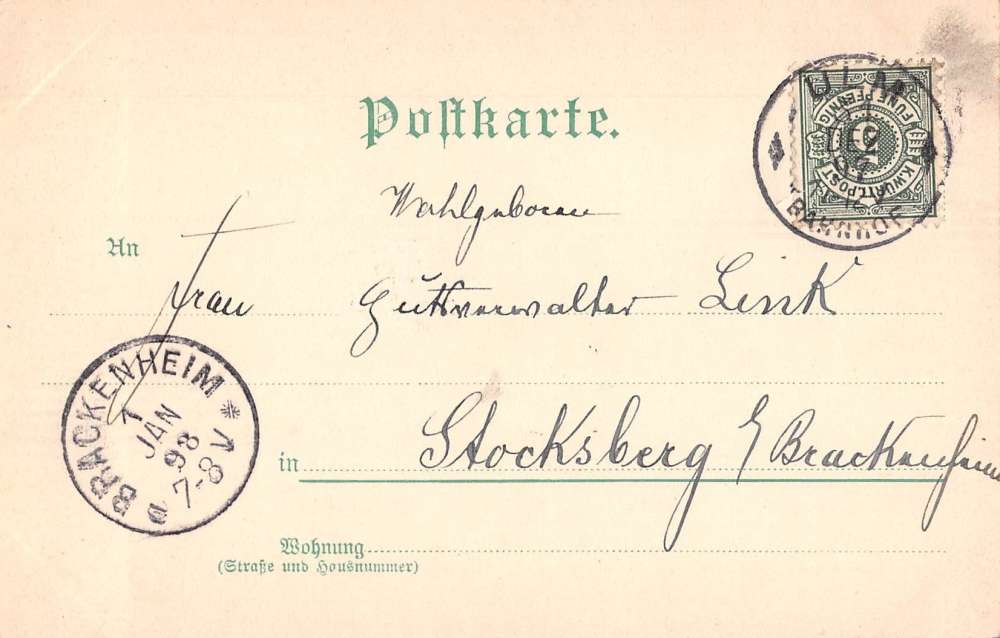 Postkarte.
ULM
DEZ
97
BAHNHOF
K.WÜRTT.POST
FÜNF PFENNIG
5
Wohlgeboren
An
Frau Gutsverwalter Link
BRACKENHEIM
1
JAN
98
7-8 V
in Stocksberg b/ Brackenheim
Wohnung
(Straße und Hausnummer)